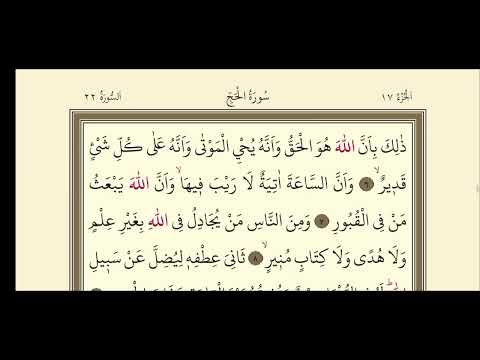 الجزء ١٧
سورة الحج
السورة ٢٢
ذٰلِكَ بِاَنَّ اللّٰهَ هُوَ الْحَقُّ وَاَنَّهُ يُحْيِ الْمَوْتٰى وَاَنَّهُ عَلٰى كُلِّ شَيْءٍ
قَد۪يرٌ ٦ وَاَنَّ السَّاعَةَ اٰتِيَةٌ لَا رَيْبَ ف۪يهَاۙ وَاَنَّ اللّٰهَ يَبْعَثُ
مَنْ فِي الْقُبُورِ ٧ وَمِنَ النَّاسِ مَنْ يُجَادِلُ فِي اللّٰهِ بِغَيْرِ عِلْمٍ
وَلَا هُدًى وَلَا كِتَابٍ مُن۪يرٍۙ ٨ ثَانِيَ عِطْفِه۪ لِيُضِلَّ عَنْ سَب۪يلِ